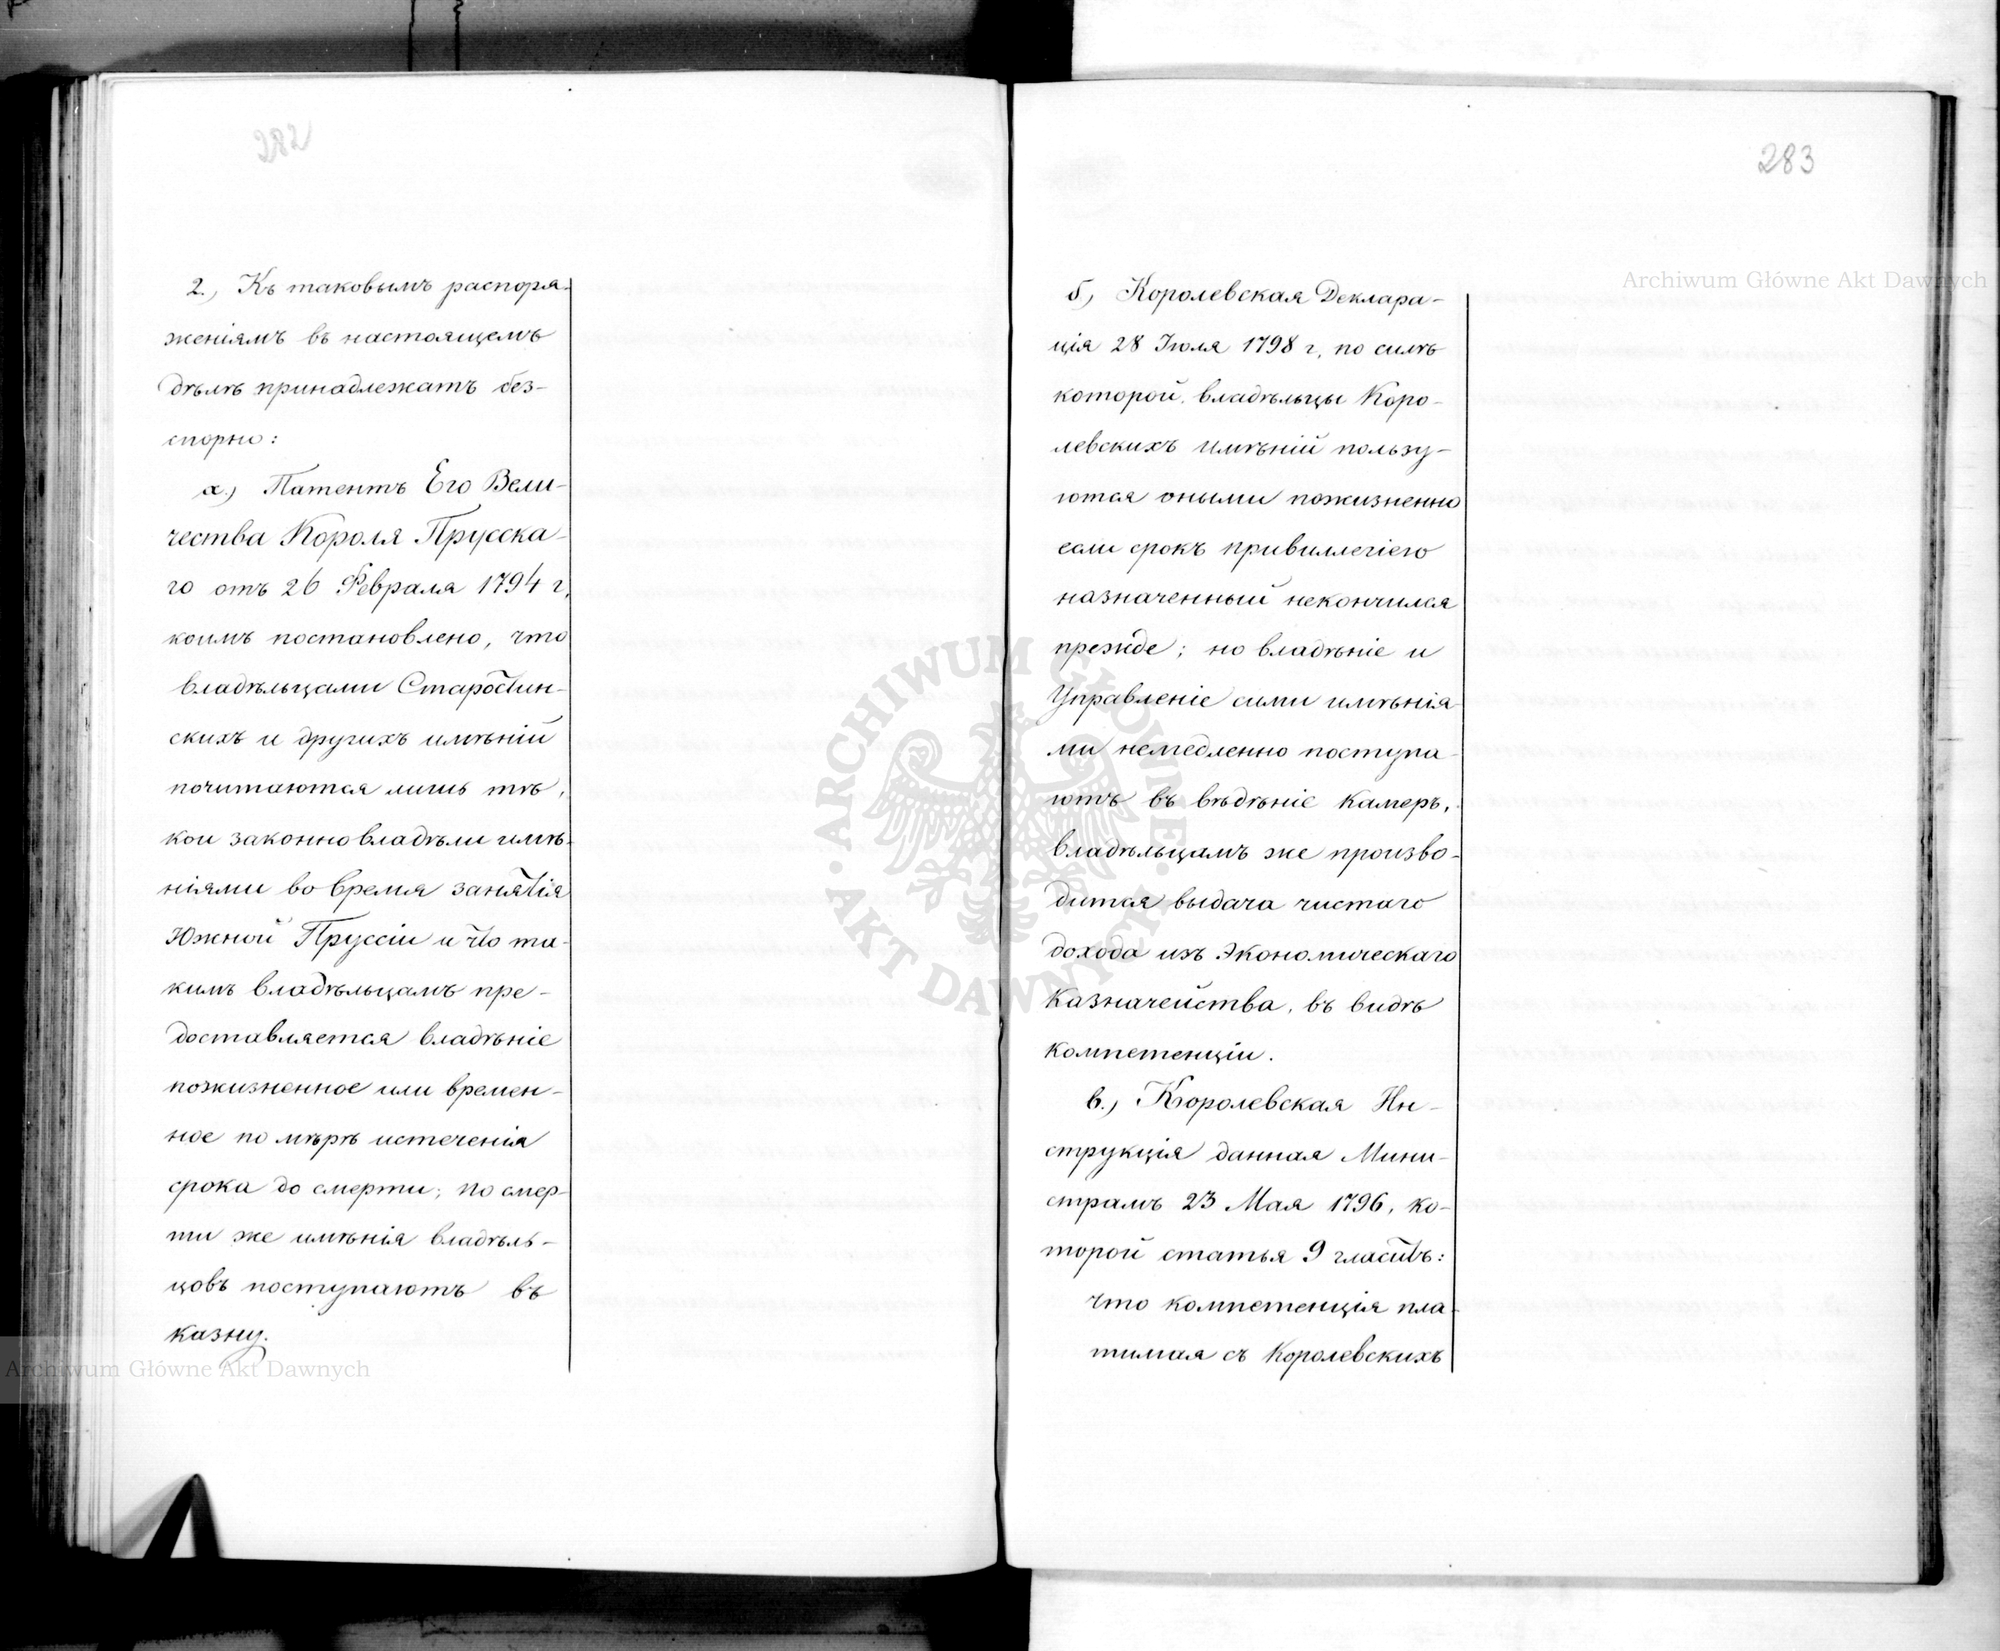 282
2., Къ таковымъ распоря-
женіямъ въ настоящемъ
дѣлѣ принадлежатъ без-
спорно:
а.) Патентъ Его Вели-
чества Короля Прусска-
го отъ 26 Февраля 1794 г.
коимъ постановлено, что
владѣльцами Старостин-
скихъ и другихъ имѣній
почитаются лишь тѣ,
кои законно владѣли имѣ-
ніями во время занятія
Южной Пруссіи и что та-
кимъ владѣльцамъ пре-
доставляется владѣніе
пожизненное или времен-
ное по мѣрѣ истеченія
срока до смерти; по смер-
ти же имѣнія владѣль-
цовъ поступаютъ въ
казну.
283
б) Королевская Деклара-
ція 28 Іюля 1798 г, по силѣ
которой, владѣльцы Коро-
левскихъ имѣній пользу-
ются оными пожизненно
если срокъ привиллегіею
назначенный некончился
прежде; но владѣніе и
Управленіе сими имѣнія-
ми немедленно поступа-
ютъ въ вѣдѣніе Камеръ,
владѣльцамъ же произво-
дится выдача чистаго
дохода изъ Экономическаго
Казначейства, въ видѣ
компетенціи.
в.) Королевская Ин-
струкція данная Мини-
страмъ 23 Мая 1796, ко-
торой статья 9 гласитъ:
что компетенція пла-
тимая съ Королевскихъ
Archiwum Główne Akt Dawnych
Archiwum Główne Akt Dawnych
ARCHIWUM GŁÓWNE · AKT DAWNYCH ·